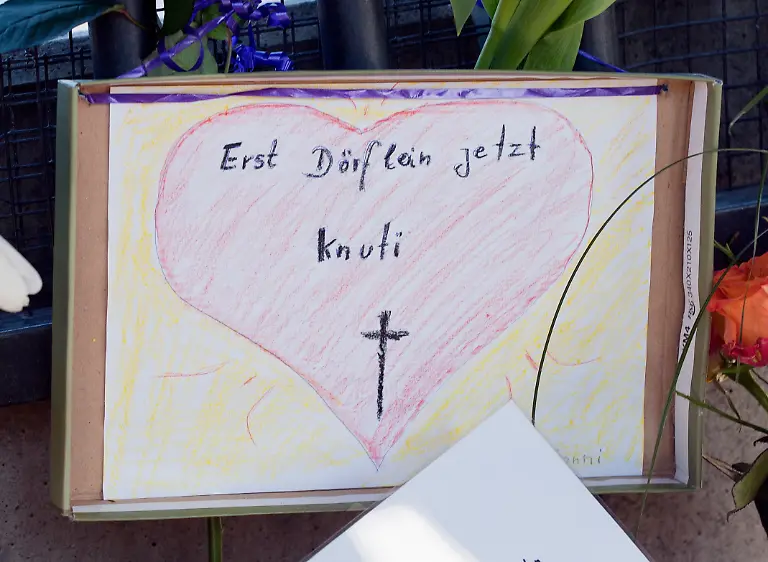 Erst Dörflein jetzt
Knuti
340X210X125